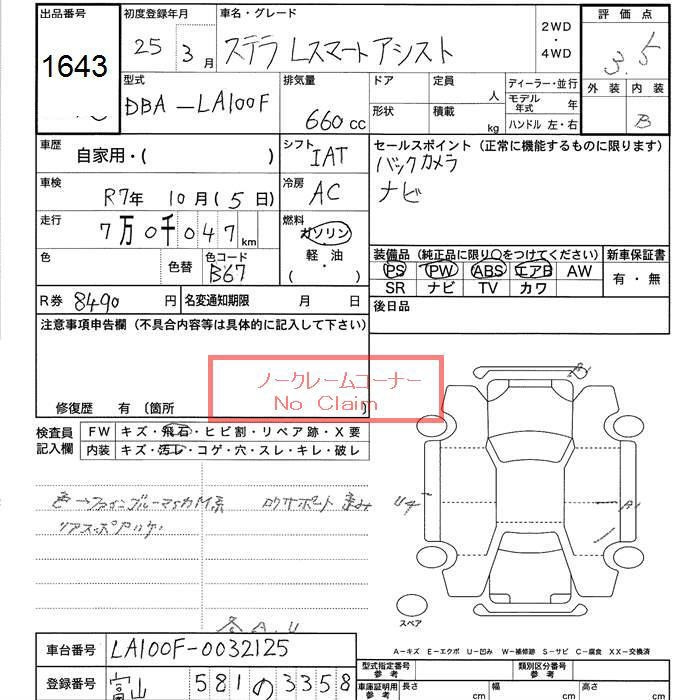 出品番号 初度登録年月 車名・グレード 2WD ・ 4WD 評価点
1643 25年 3月 ステラ Lスマートアシスト 3.5
型式 排気量 ドア 定員 人 ディーラー・並行 外装 内装
DBA-LA100F 660cc 形状 積載 kg モデル年式 年 B
ハンドル 左・右
車歴 自家用・( ) シフト IAT セールスポイント (正常に機能するものに限ります)
バックカメラ
車検 R7年 10月(5日) 冷房 AC ナビ
走行 7万0千047km 燃料 ガソリン・軽油・( )
装備品 (純正品に限り〇をつけてください) 新車保証書
色 色替 色コード B67 PS PW ABS エアB AW 有・無
SR ナビ TV カワ
R券 8490円 名変通知期限 月 日 後日品
注意事項申告欄 (不具合内容等は具体的に記入して下さい)
ノークレームコーナー
No Claim
修復歴 有 〔箇所 〕
検査員記入欄 FW キズ・飛石・ヒビ割・リペア跡・X要
内装 キズ・汚レ・コゲ・穴・スレ・キレ・破レ
A1
U4 A1
スペア
各 A.U
A−キズ E−エクボ U−凹み W−補修跡 S−サビ C−腐食 XX−交換済
車台番号 LA100F-0032125
型式指定番号 参考 類別区分番号 参考
登録番号 富山 581 の 3358
車庫証明用 参考 長さ cm 幅 cm 高さ cm